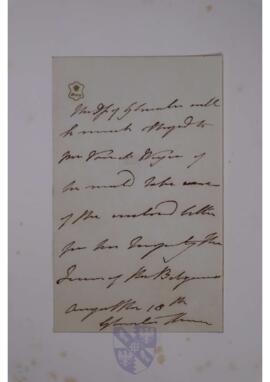 The Dss of Gloucester will
be much obliged to
Mr Van de Weyer if
he would take care
of the enclosed letter
for her to the
Queen of the Belgians
August the 18th
Gloucester House